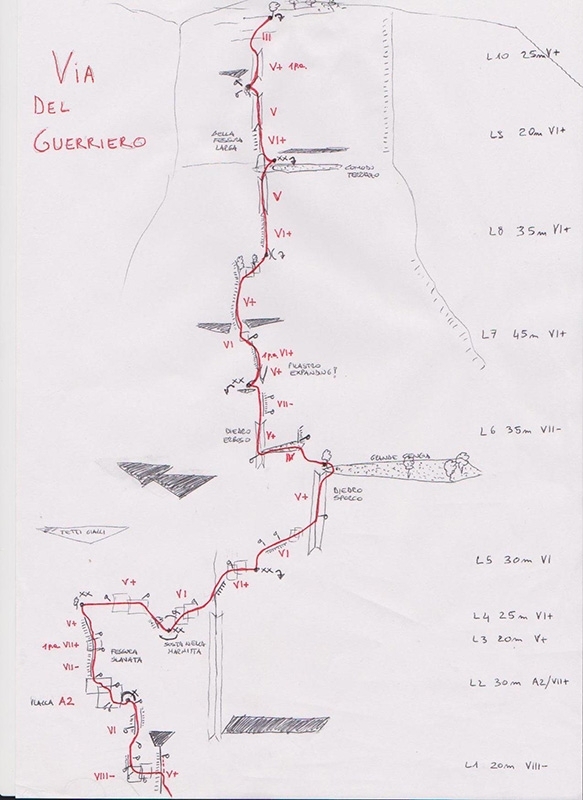 VIA
DEL
GUERRIERO
III
V+ 1pa
V
VI+
DELLA
FESSURA
LARGA
XX
COMODO
TERRAZZO
V
VI+
V+
VI
1pa VI+
V+
PILASTRO
EXPANDING?
XX
VII-
DIEDRO
ERBOSO
V+
IV
GRANDE CENGIA
DIEDRO
SPORCO
V+
TETTI GIALLI
VI
VI+
XX
XX
V+
VI
V+
1pa VII+
VII-
FESSURA
SLAVATA
XX
SOSTA NELLA
MARMITTA
PLACCA A2
X
VI
VIII-
V+
L10 25m V+
L9 20m VI+
L8 35m VI+
L7 45m VI+
L6 35m VII-
L5 30m VI
L4 25m VI+
L3 20m V+
L2 30m A2/VII+
L1 20m VIII-